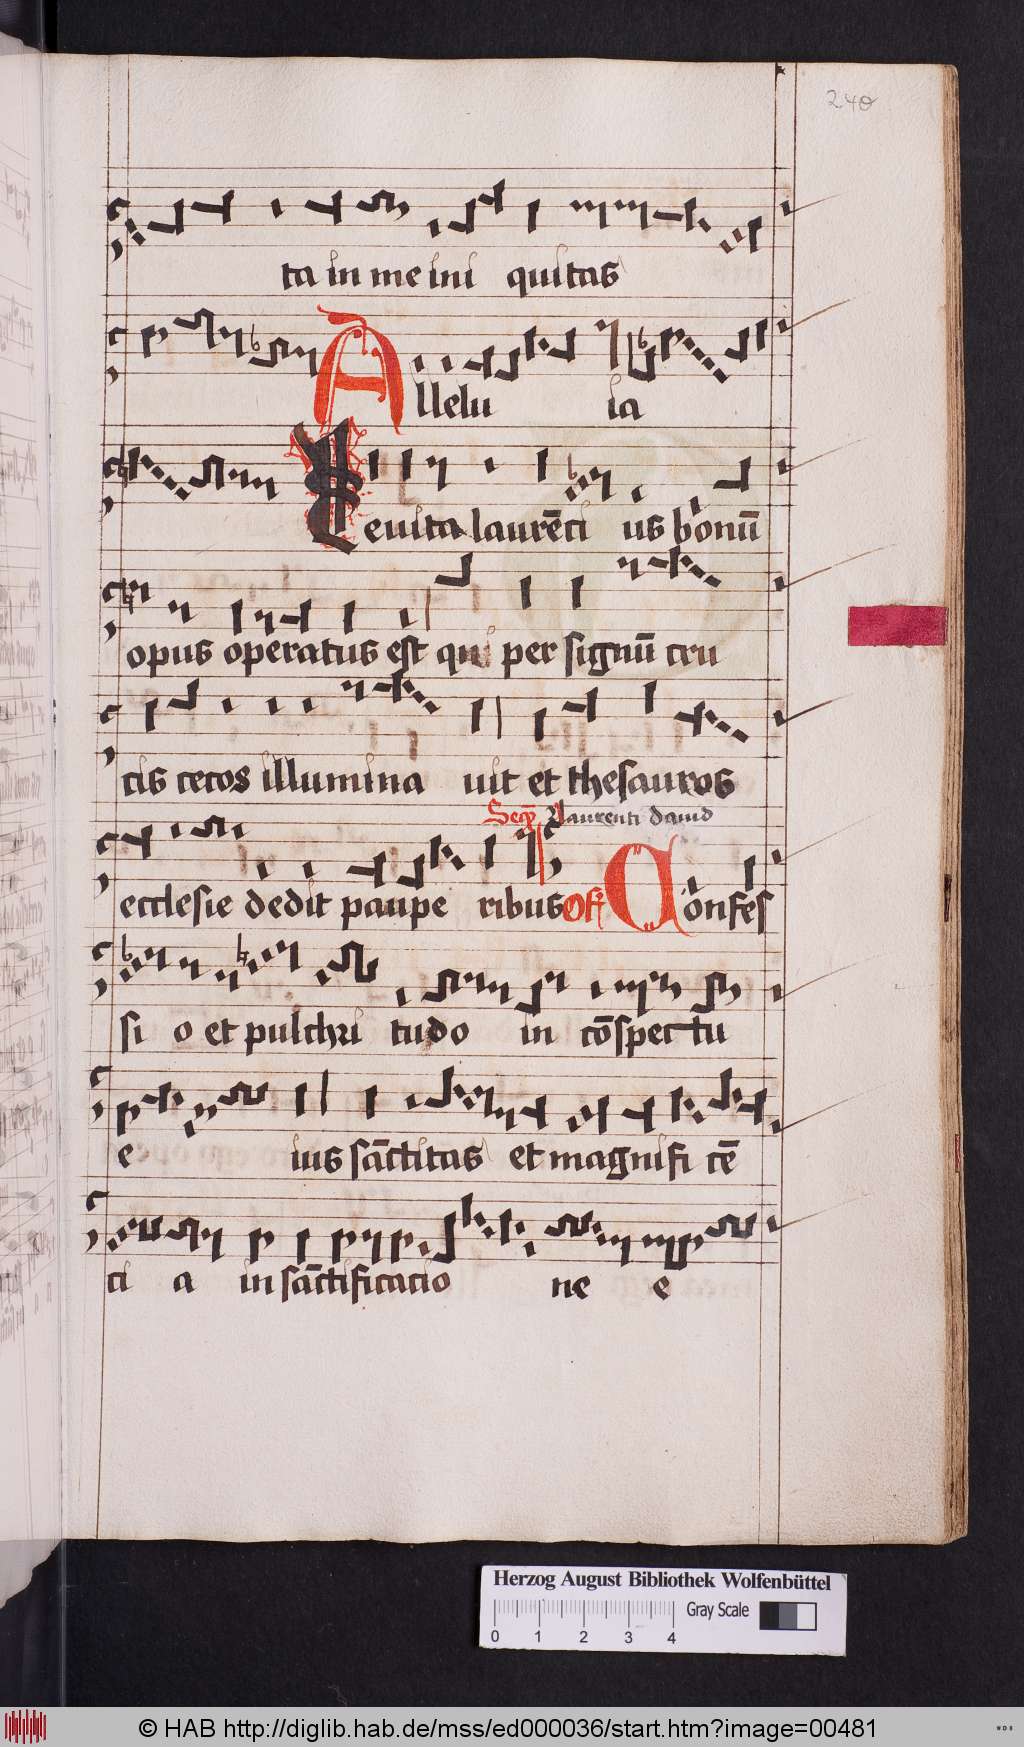 240
ta in me ini quitas
Allelu ia
Leuita laurēti us bonū
opus operatus est qui per signū cru
cis cecos illumina uit et thesauros
Seq̄ Laurenti dauid
ecclesie dedit paupe ribus Of Confes
si o et pulchri tudo in cōspectu
e ius sāctitas et magnifi cē
ci a in sāctificacio ne e
Herzog August Bibliothek Wolfenbüttel
Gray Scale
0 1 2 3 4
© HAB http://diglib.hab.de/mss/ed000036/start.htm?image=00481